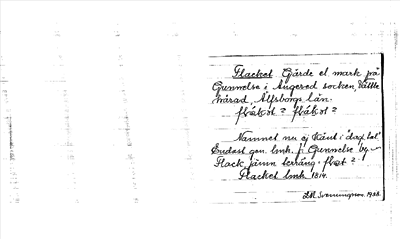 Flacket. Gärde el. mark på
Gunnelse i Angered socken, Vättle
härad, Älfsborgs län.
flăkət ? flăkət ?
Namnet nu ej känt i dagl. tal
Endast gen. lmk. på Gunnelse by
Flack jämn terräng. flæt ?
Flacket lmk 1814.
1928.